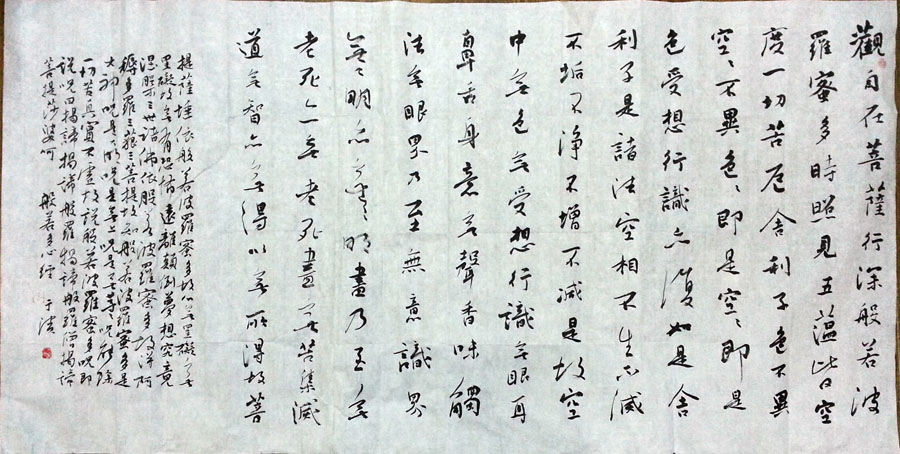 觀自在菩薩行深般若波
羅蜜多時照見五蘊皆空
度一切苦厄舍利子色不異
空空不異色色即是空空即是
色受想行識亦復如是舍
利子是諸法空相不生不滅
不垢不淨不增不減是故空
中無色無受想行識無眼耳
鼻舌身意無聲香味觸
法無眼界乃至無意識界
無無明亦無無明盡乃至無
老死亦無老死盡無苦集滅
道無智亦無得以無所得故菩
提薩埵依般若波羅蜜多故心無罣礙無
罣礙故無有恐怖遠離顛倒夢想究竟
涅槃三世諸佛依般若波羅蜜多故得阿
耨多羅三藐三菩提故知般若波羅蜜多是
大神咒是大明咒是無上咒是無等等咒能除
一切苦真實不虛故說般若波羅蜜多咒即
說咒曰揭諦揭諦般羅揭諦般羅僧揭諦
菩提莎婆訶 般若多心經